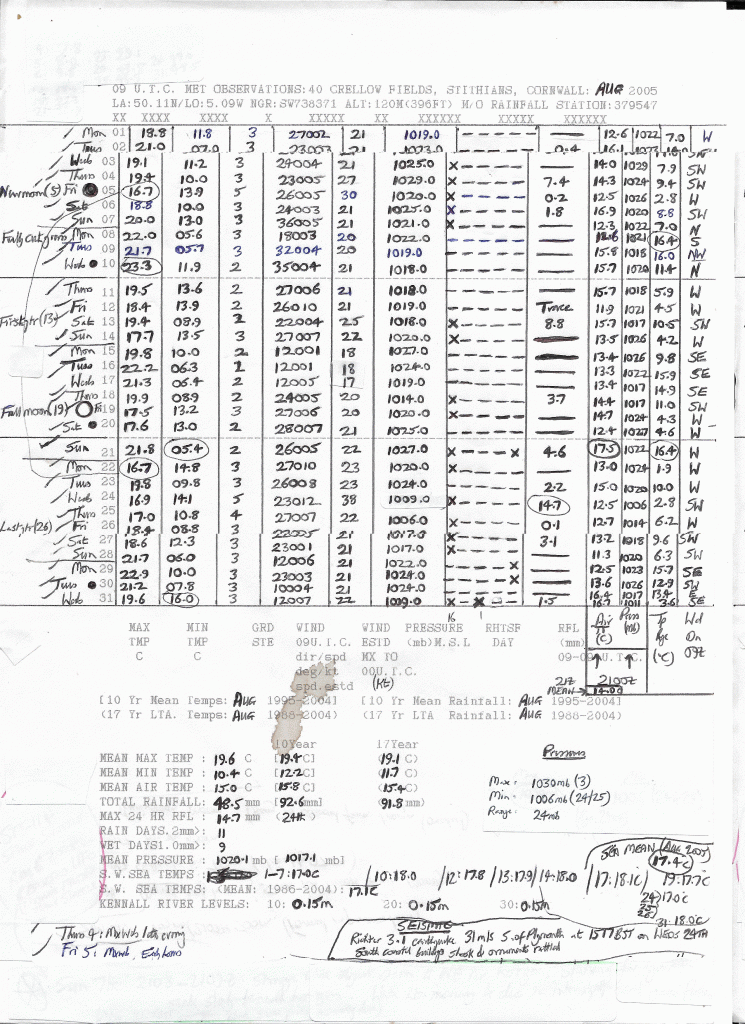 09 U.T.C. MET OBSERVATIONS:40 CRELLOW FIELDS, STITHIANS, CORNWALL: AUG 2005
LA:50.11N/LO:5.09W NGR:SW738371 ALT:120M(396FT) M/O RAINFALL STATION:379547
XX XXXX XXXX X XXXXX XX XXXXXX XXXXX XXXXX
Mon 01 18.8 11.8 3 27002 21 1019.0 ------ — 12.6 1022 7.0 W
Tues 02 21.0 07.0 3 23003 21 1023.0 0.4
Web 03 19.1 11.2 3 24004 21 1025.0 x----- — 14.0 1029 7.9 SW
Thro 04 19.4 10.0 3 23005 27 1029.0 x----- 7.4 14.3 1024 9.4 SW
Newmoon (5) Fri 05 16.7 13.9 5 26005 30 1020.0 x----- 0.2 12.5 1026 2.8 W
Sat 06 18.8 10.0 3 24003 21 1025.0 x----- 1.8 16.9 1020 8.8 SW
Sun 07 20.0 13.0 3 36005 21 1021.0 x----- — 12.3 1022 7.0 N
Mon 08 22.0 05.6 3 18003 20 1022.0 ------ — 12.6 1021 16.4 S
Tues 09 21.7 05.7 3 32004 20 1019.0 ------ — 15.8 1018 16.0 NW
Web 10 23.3 11.9 2 35004 21 1018.0 ------ — 15.7 1020 11.4 N
Thro 11 19.5 13.6 2 27006 21 1018.0 ------ — 15.7 1018 5.9 W
Fri 12 18.4 13.9 2 26010 21 1019.0 ------ Trace 11.9 1021 4.5 W
First qtr (13) Sat 13 19.4 08.9 2 22004 25 1018.0 x----- 8.8 15.7 1017 10.5 SW
Sun 14 17.7 13.5 3 27007 22 1020.0 x----- — 13.5 1026 4.2 W
Mon 15 19.8 10.0 2 12001 18 1027.0 ------ — 13.4 1026 9.8 SE
Tues 16 22.2 06.3 1 12001 18 1024.0 ------ — 13.3 1022 15.9 SE
Web 17 21.3 06.4 2 12005 17 1019.0 ------ — 13.4 1017 14.9 SE
Thro 18 19.9 08.9 2 24005 20 1014.0 x----- 3.7 14.4 1017 11.0 SW
Full moon (19) Fri 19 17.5 13.2 3 27006 20 1020.0 x----- — 14.7 1024 4.3 W
Sat 20 17.6 13.0 2 28007 21 1025.0 ------ — 12.4 1027 4.6 W
Sun 21 21.8 05.4 2 26005 22 1027.0 x----x 4.6 17.5 1022 16.4 W
Mon 22 16.7 14.8 3 27010 23 1020.0 x----- — 13.0 1024 1.9 W
Tues 23 19.8 09.8 3 26008 23 1024.0 ------ 2.2 15.0 1020 10.0 W
Web 24 16.9 14.1 5 23012 38 1009.0 x----- 14.7 12.5 1006 2.8 SW
Thro 25 17.0 10.8 4 27007 22 1006.0 x----- 0.1 12.7 1014 6.2 W
Last qtr (26) Fri 26 18.4 08.8 3 22005 21 1017.0 x----- 3.1 13.2 1018 9.6 SW
Sat 27 18.6 12.3 3 23001 21 1017.0 x----- — 11.3 1020 6.3 SW
Sun 28 21.7 06.0 3 12006 21 1022.0 -----x — 12.5 1023 15.7 SE
Mon 29 22.9 10.0 3 23003 21 1024.0 -----x — 13.6 1026 12.9 SW
Tues 30 21.2 07.8 3 10004 21 1024.0 ------ — 16.4 1017 13.4 E
Web 31 19.6 16.0 3 12007 22 1009.0 x-x--- 1.5 16.7 1011 3.6 SE
16 1
MAX MIN GRD WIND WIND PRESSURE RHTSF RFL Air TT (C) Press (mb) Wd
TMP TMP STE 09U.T.C. ESTD (mb)M.S.L DAY (mm) On
C C dir/spd MX TO 09-09U.T.C. (°C)
deg/kt 00U.T.C.
spd.estd (Kt) 21Z 2100Z
MEAN→ 14.00
[10 Yr Mean Temps: AUG 1995-2004] [10 Yr Mean Rainfall: AUG 1995-2004]
(17 Yr LTA. Temps: AUG 1988-2004) (17 Yr LTA Rainfall: AUG 1988-2004)
10Year 17Year Pressures
MEAN MAX TEMP : 19.6 C [19.4C] (19.1 C)
MEAN MIN TEMP : 10.4 C [12.2C] (11.7 C)
MEAN AIR TEMP : 15.0 C [15.8C] (15.4C)
TOTAL RAINFALL: 48.5 mm [92.6mm] (91.8mm)
MAX 24 HR RFL : 14.7 mm (24th)
Max: 1030mb (3)
Min: 1006mb (24/25)
Range: 24mb
RAIN DAYS.2mm): 11
WET DAYS1.0mm): 9
MEAN PRESSURE : 1020.1 mb [ 1017.1 mb]
SEA MEAN (AUG 2005) 17.4C
S.W.SEA TEMPS: 1-7:17.0C /10:18.0 /12:17.8 /13:17.9 /14:18.0 /17:18.1C 19:17.7C
S.W. SEA TEMPS: (MEAN: 1986-2004): 17.1C
24) 17.0C
25)
26)
31:18.0C
KENNALL RIVER LEVELS: 10: 0.15m 20: 0.15m 30: 0.15m
Thro 4: Mxwb late evng
Fri 5: Mxwb,
SEISMIC
Richter 3.1 earthquake 31mls S. of Plymouth at 1517BST on WEDS 24TH
South coastal buildings shook & ornaments rattled